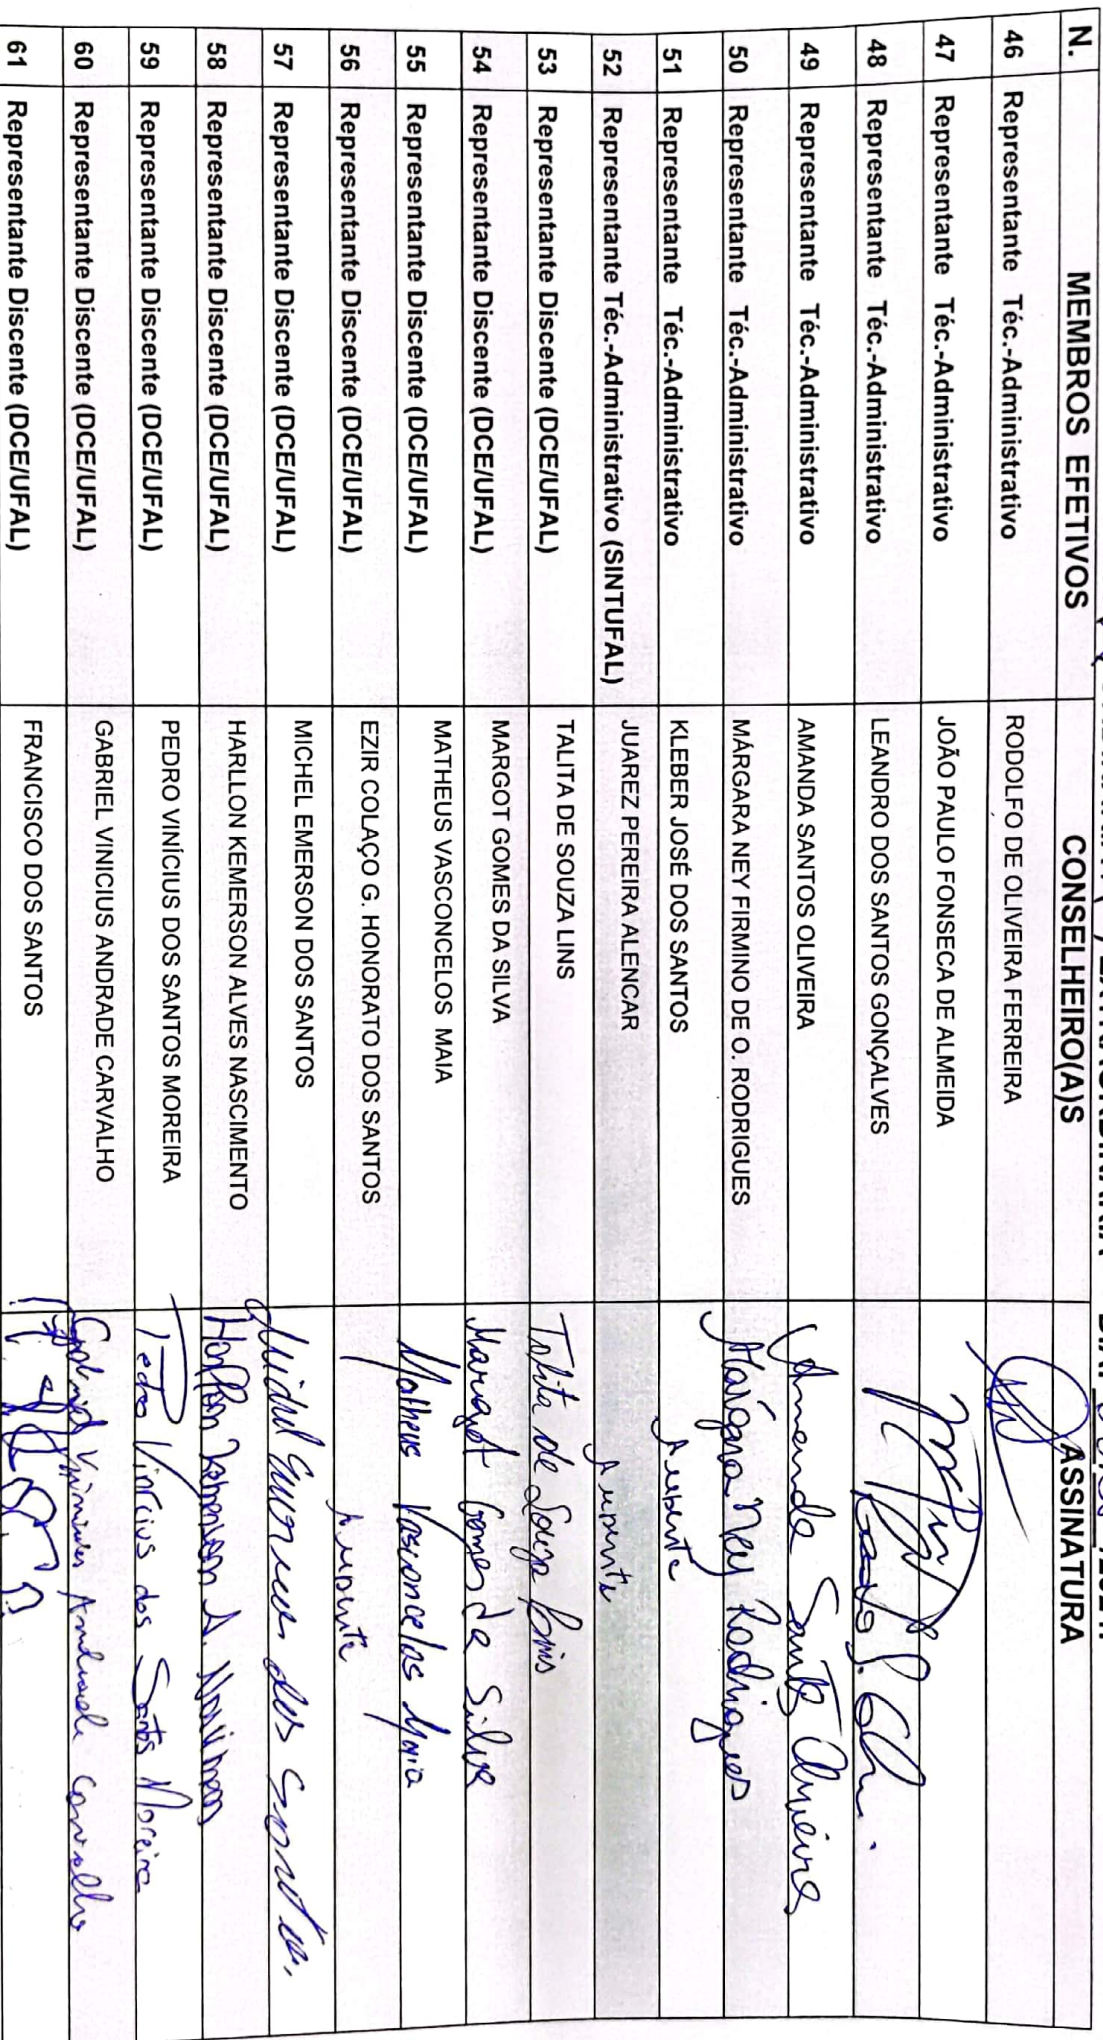 EXTRAORDINÁRIA
N. MEMBROS EFETIVOS CONSELHEIRO(A)S ASSINATURA
46 Representante Téc.-Administrativo RODOLFO DE OLIVEIRA FERREIRA
47 Representante Téc.-Administrativo JOÃO PAULO FONSECA DE ALMEIDA
48 Representante Téc.-Administrativo LEANDRO DOS SANTOS GONÇALVES
49 Representante Téc.-Administrativo AMANDA SANTOS OLIVEIRA Amanda Santos Oliveira
50 Representante Téc.-Administrativo MÁRGARA NEY FIRMINO DE O. RODRIGUES Márgara Ney Rodrigues
51 Representante Téc.-Administrativo KLEBER JOSÉ DOS SANTOS Ausente
52 Representante Téc.-Administrativo (SINTUFAL) JUAREZ PEREIRA ALENCAR Ausente
53 Representante Discente (DCE/UFAL) TALITA DE SOUZA LINS Talita de Souza Lins
54 Representante Discente (DCE/UFAL) MARGOT GOMES DA SILVA Margot Gomes da Silva
55 Representante Discente (DCE/UFAL) MATHEUS VASCONCELOS MAIA Matheus Vasconcelos Maia
56 Representante Discente (DCE/UFAL) EZIR COLAÇO G. HONORATO DOS SANTOS Ausente
57 Representante Discente (DCE/UFAL) MICHEL EMERSON DOS SANTOS Michel Emerson dos Santos
58 Representante Discente (DCE/UFAL) HARLLON KEMERSON ALVES NASCIMENTO Harllon Kemerson A.
59 Representante Discente (DCE/UFAL) PEDRO VINÍCIUS DOS SANTOS MOREIRA Pedro Vinícius dos Santos Moreira
60 Representante Discente (DCE/UFAL) GABRIEL VINICIUS ANDRADE CARVALHO Gabriel Vinicius Andrade Carvalho
61 Representante Discente (DCE/UFAL) FRANCISCO DOS SANTOS